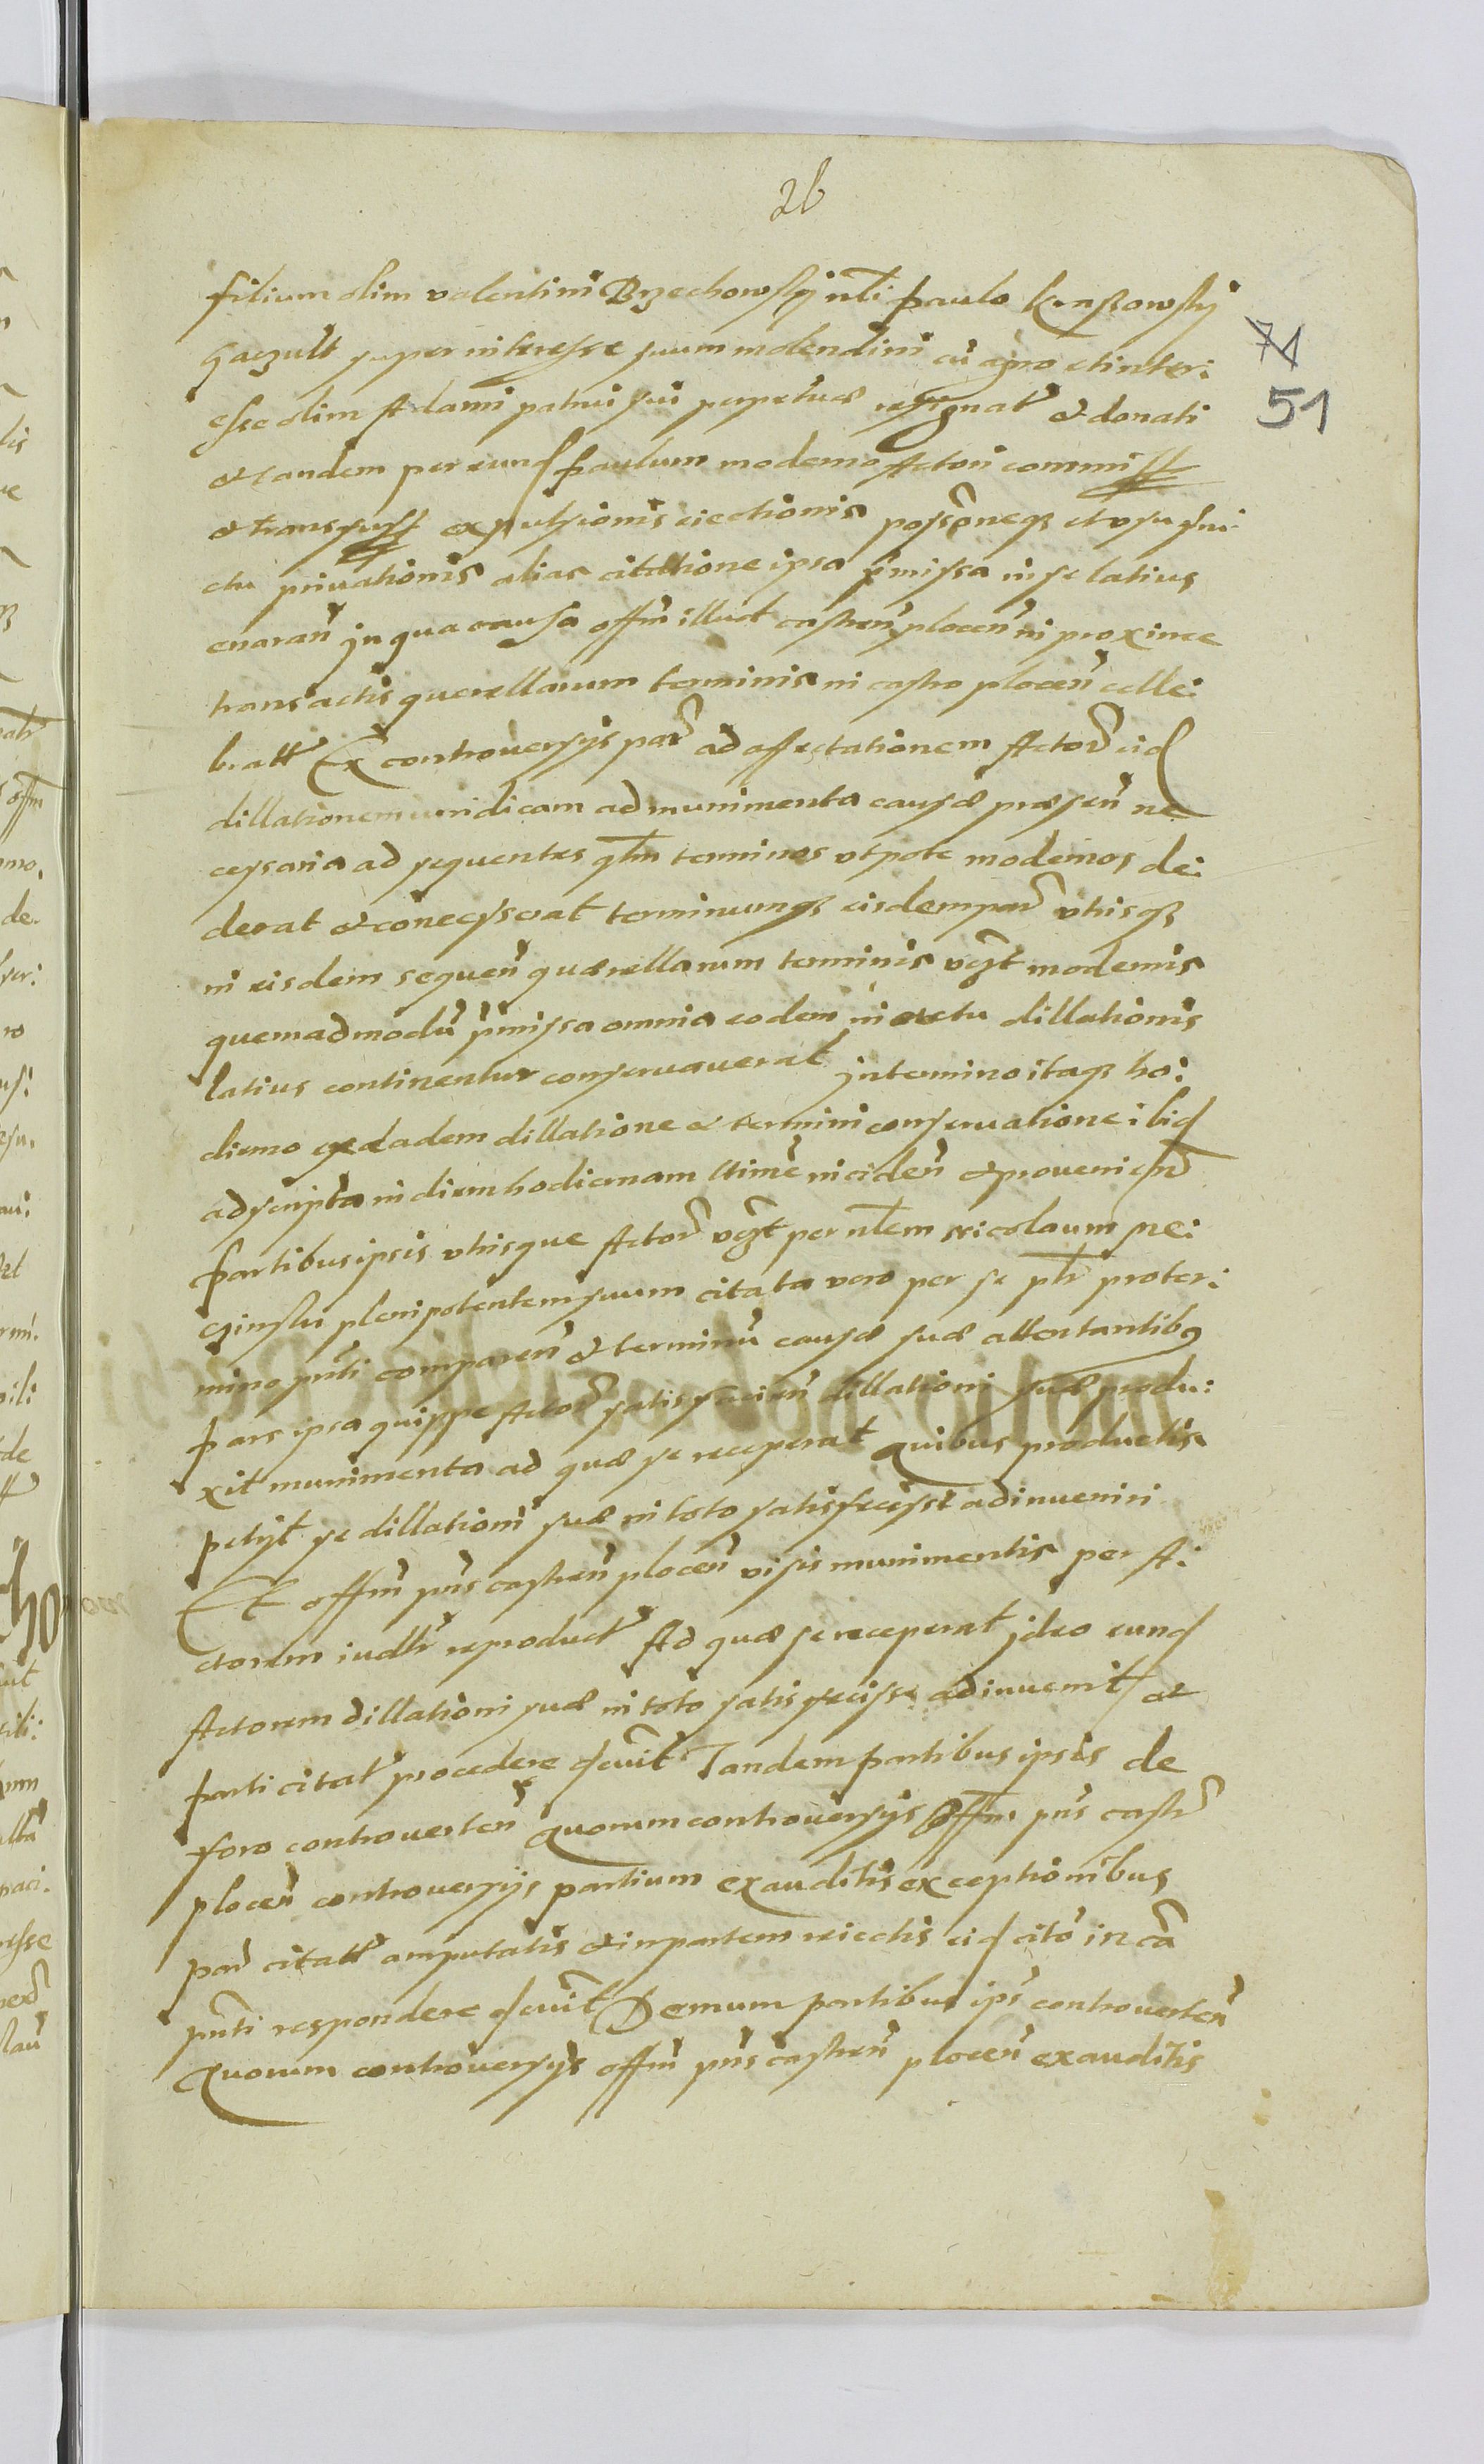 26
filium olim valentini Brzechowskj nli paulo kraßowskj
super interesse suum molendini cū agro et inter:
esse olim Adami patrui sui perpetuæ resignat̃ & donati
& tandem per eund paulum moderno Actori commiss
& transfuss expulsionis eiectionis possõneqȝ et vsu fru:
ctu priuationis alias citatione ipsa p̃missa in se latius
enarañ jn qua causa offm̃ illud castreñ ploceñ in proxime
transactis querellarum terminis in castro ploceñ celle:
bratt̃ Ex controuersÿs par̃ ad affectationem Actor̃ eid
dillationem iuridicam ad munimenta causæ præseñ ne
cessaria ad sequentes qlm terminos vtpote modernos de:
derat & concesserat terminumqȝ eisdem par̃ vtrisqȝ
in eisdem sequeñ quærellarum terminis vgt̃ modernis
quemadmodũ p̃missa omnia eodem in actu dillationis
latius continentur conseruauerat jn termino itaqȝ ho:
dierno ex eadem dillatione & termini conseruatione ibid
adscripta in diem hodiernam ltime incideñ & proueniend̃
partibus ipsis vtrisque Actor̃ vgt̃ per nlem Nicolaum
plenipotentem suum citata vero per se pltr̃ pro ter:
mino pñti compareñ & terminũ causæ suæ attentantibꝯ
pars ipsa quippe Actor̃ satisfacieñ dillationi suæ produ:
xit munimenta ad quæ se receperat quibus productis
petÿt se dillationi suæ in toto satisfecisse adinueniri
Et offm̃ pñs castreñ ploceñ visis munimentis per A:
ctorem iudltr̃ reproduct̃ Ad quæ se receperat jdeo eund
Actorem dillationi suæ in toto satisfecisse adinuenit &
parti citat̃ procedere dcreuit Tandem partibus ipsis de
foro controuerteñ quorum controuersÿs offm̃ pñs castr̃
ploceñ controuersÿs partium exauditis exceptionibus
par̃ citatt̃ amputatis & inpartem reiectis eid cito in cã
pñti respondere dcreuit Demum partibus ips̃ controuerteñ
Quorum controuersÿs offm̃ pñs castreñ ploceñ exauditis
71
51